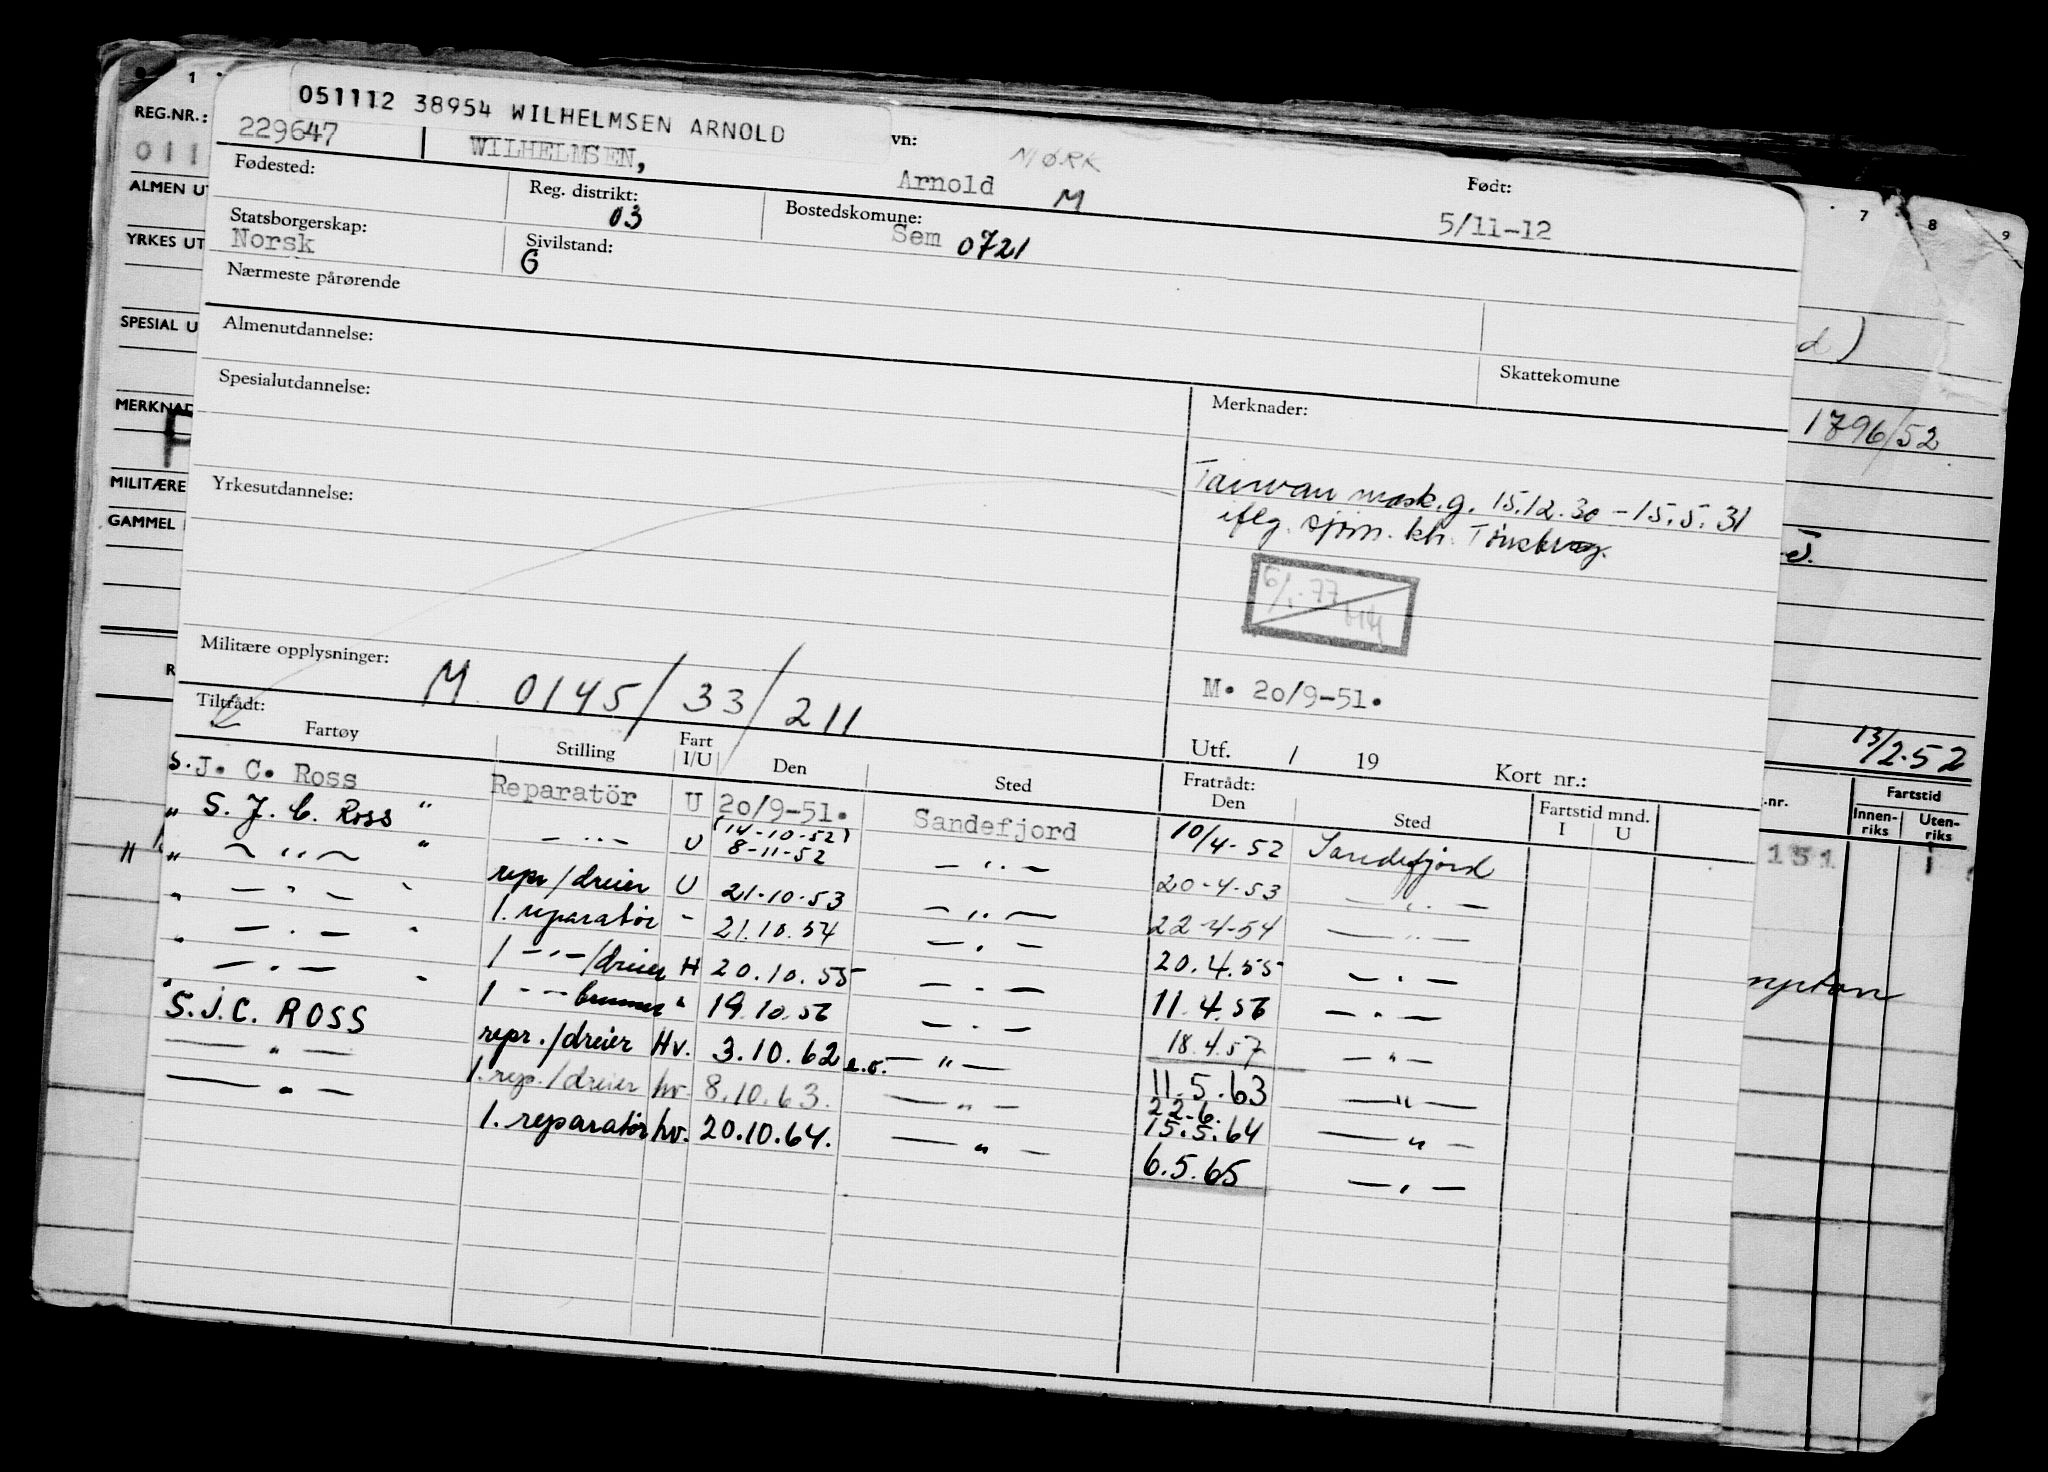 1
REG.NR.:
051112 38954 WILHELMSEN ARNOLD
011
229647 WILHELMSEN, vn: Arnold MØRK M Født: 5/11-12
7 8 9
ALMEN UT
Fødested: Reg. distrikt: 03 Bostedskomune: Sem 0721
YRKES UT
Statsborgerskap: Norsk Sivilstand: G
Nærmeste pårørende
SPESIAL U
Almenutdannelse: Skattekomune
d)
MERKNAD
Spesialutdannelse: Merknader:
1796/52
Taiwan mask.g. 15.12.30 - 15.5.31
iflg. sjøm. ktr. Tönsberg.
MILITÆRE
Yrkesutdannelse:
GAMMEL
6/1-77
Militære opplysninger: M 0145/33/211
M. 20/9-51.
13/2-52
Tiltrådt: Utf. / 19 Kort nr.:
Fartøy Stilling Fart I/U Den Sted Fratrådt: Den Sted Fartstid mnd. I U
.nr. Fartstid Innen-riks Uten-riks
151 1
S. J. C. Ross Reparatör U 20/9-51. Sandefjord 10/4-52 Sandefjord
" S. J. C. Ross " — " — U (14-10-52) 8-11-52 — " — 20-4-53 — " —
" — " — " repr/dreier U 21-10-53 — " — 22-4-54 — " —
" — " — " 1. reparatør - 21.10.54 — " — 20.4.55 — " —
" — " — " 1 — " —/dreier H 20.10.55 — " — 11.4.56 — " —
" — " — " 1 — " — " 19.10.56 — " — 18.4.57 — " —
S.J.C. ROSS repr./dreier Hv. 3.10.62 e.o. — " — 11.5.63 — " —
— " — 1. rep./dreier hv. 8.10.63. — " — 22-6. 15.5.64 — " —
— " — 1. reparatör hv. 20.10.64. — " — 6.5.65 — " —